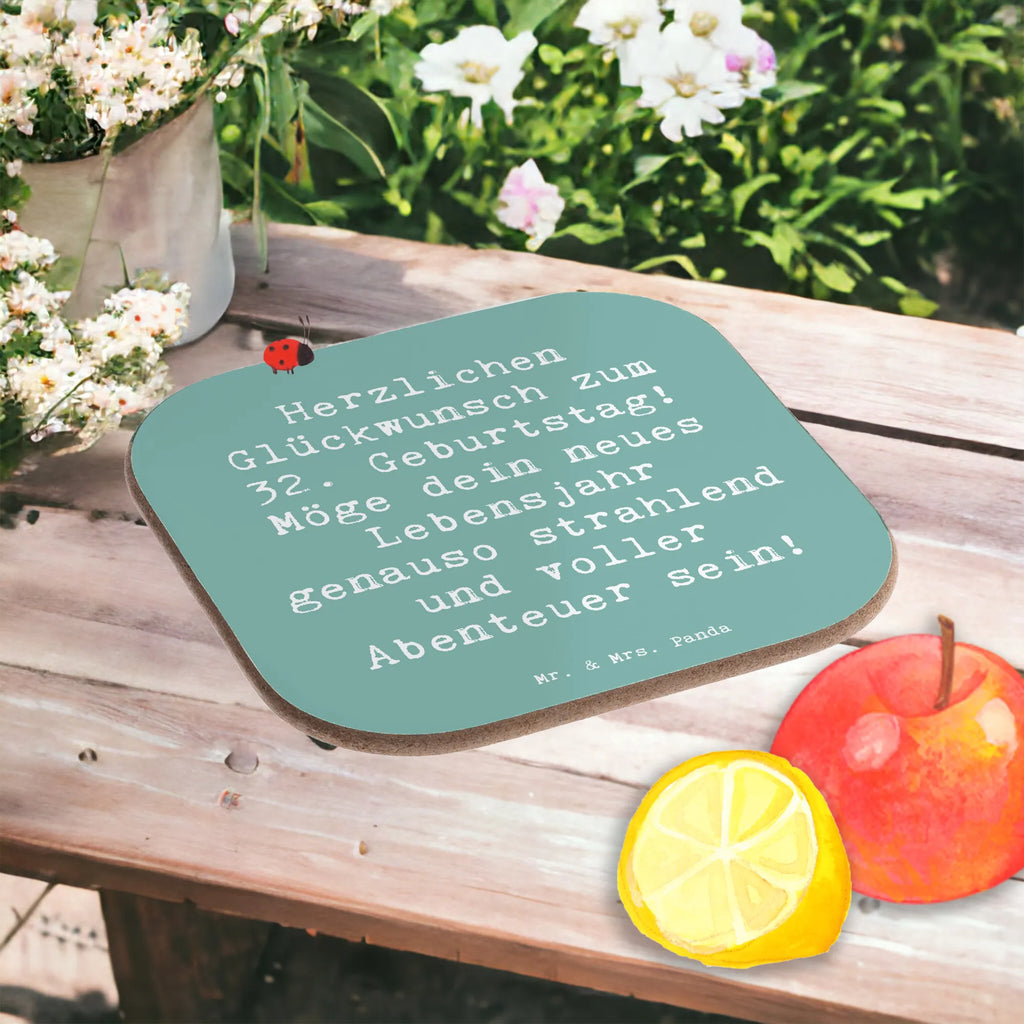 Herzlichen
Glückwunsch zum
32. Geburtstag!
Möge dein neues
Lebensjahr
genauso strahlend
und voller
Abenteuer sein!
Mr. & Mrs. Panda